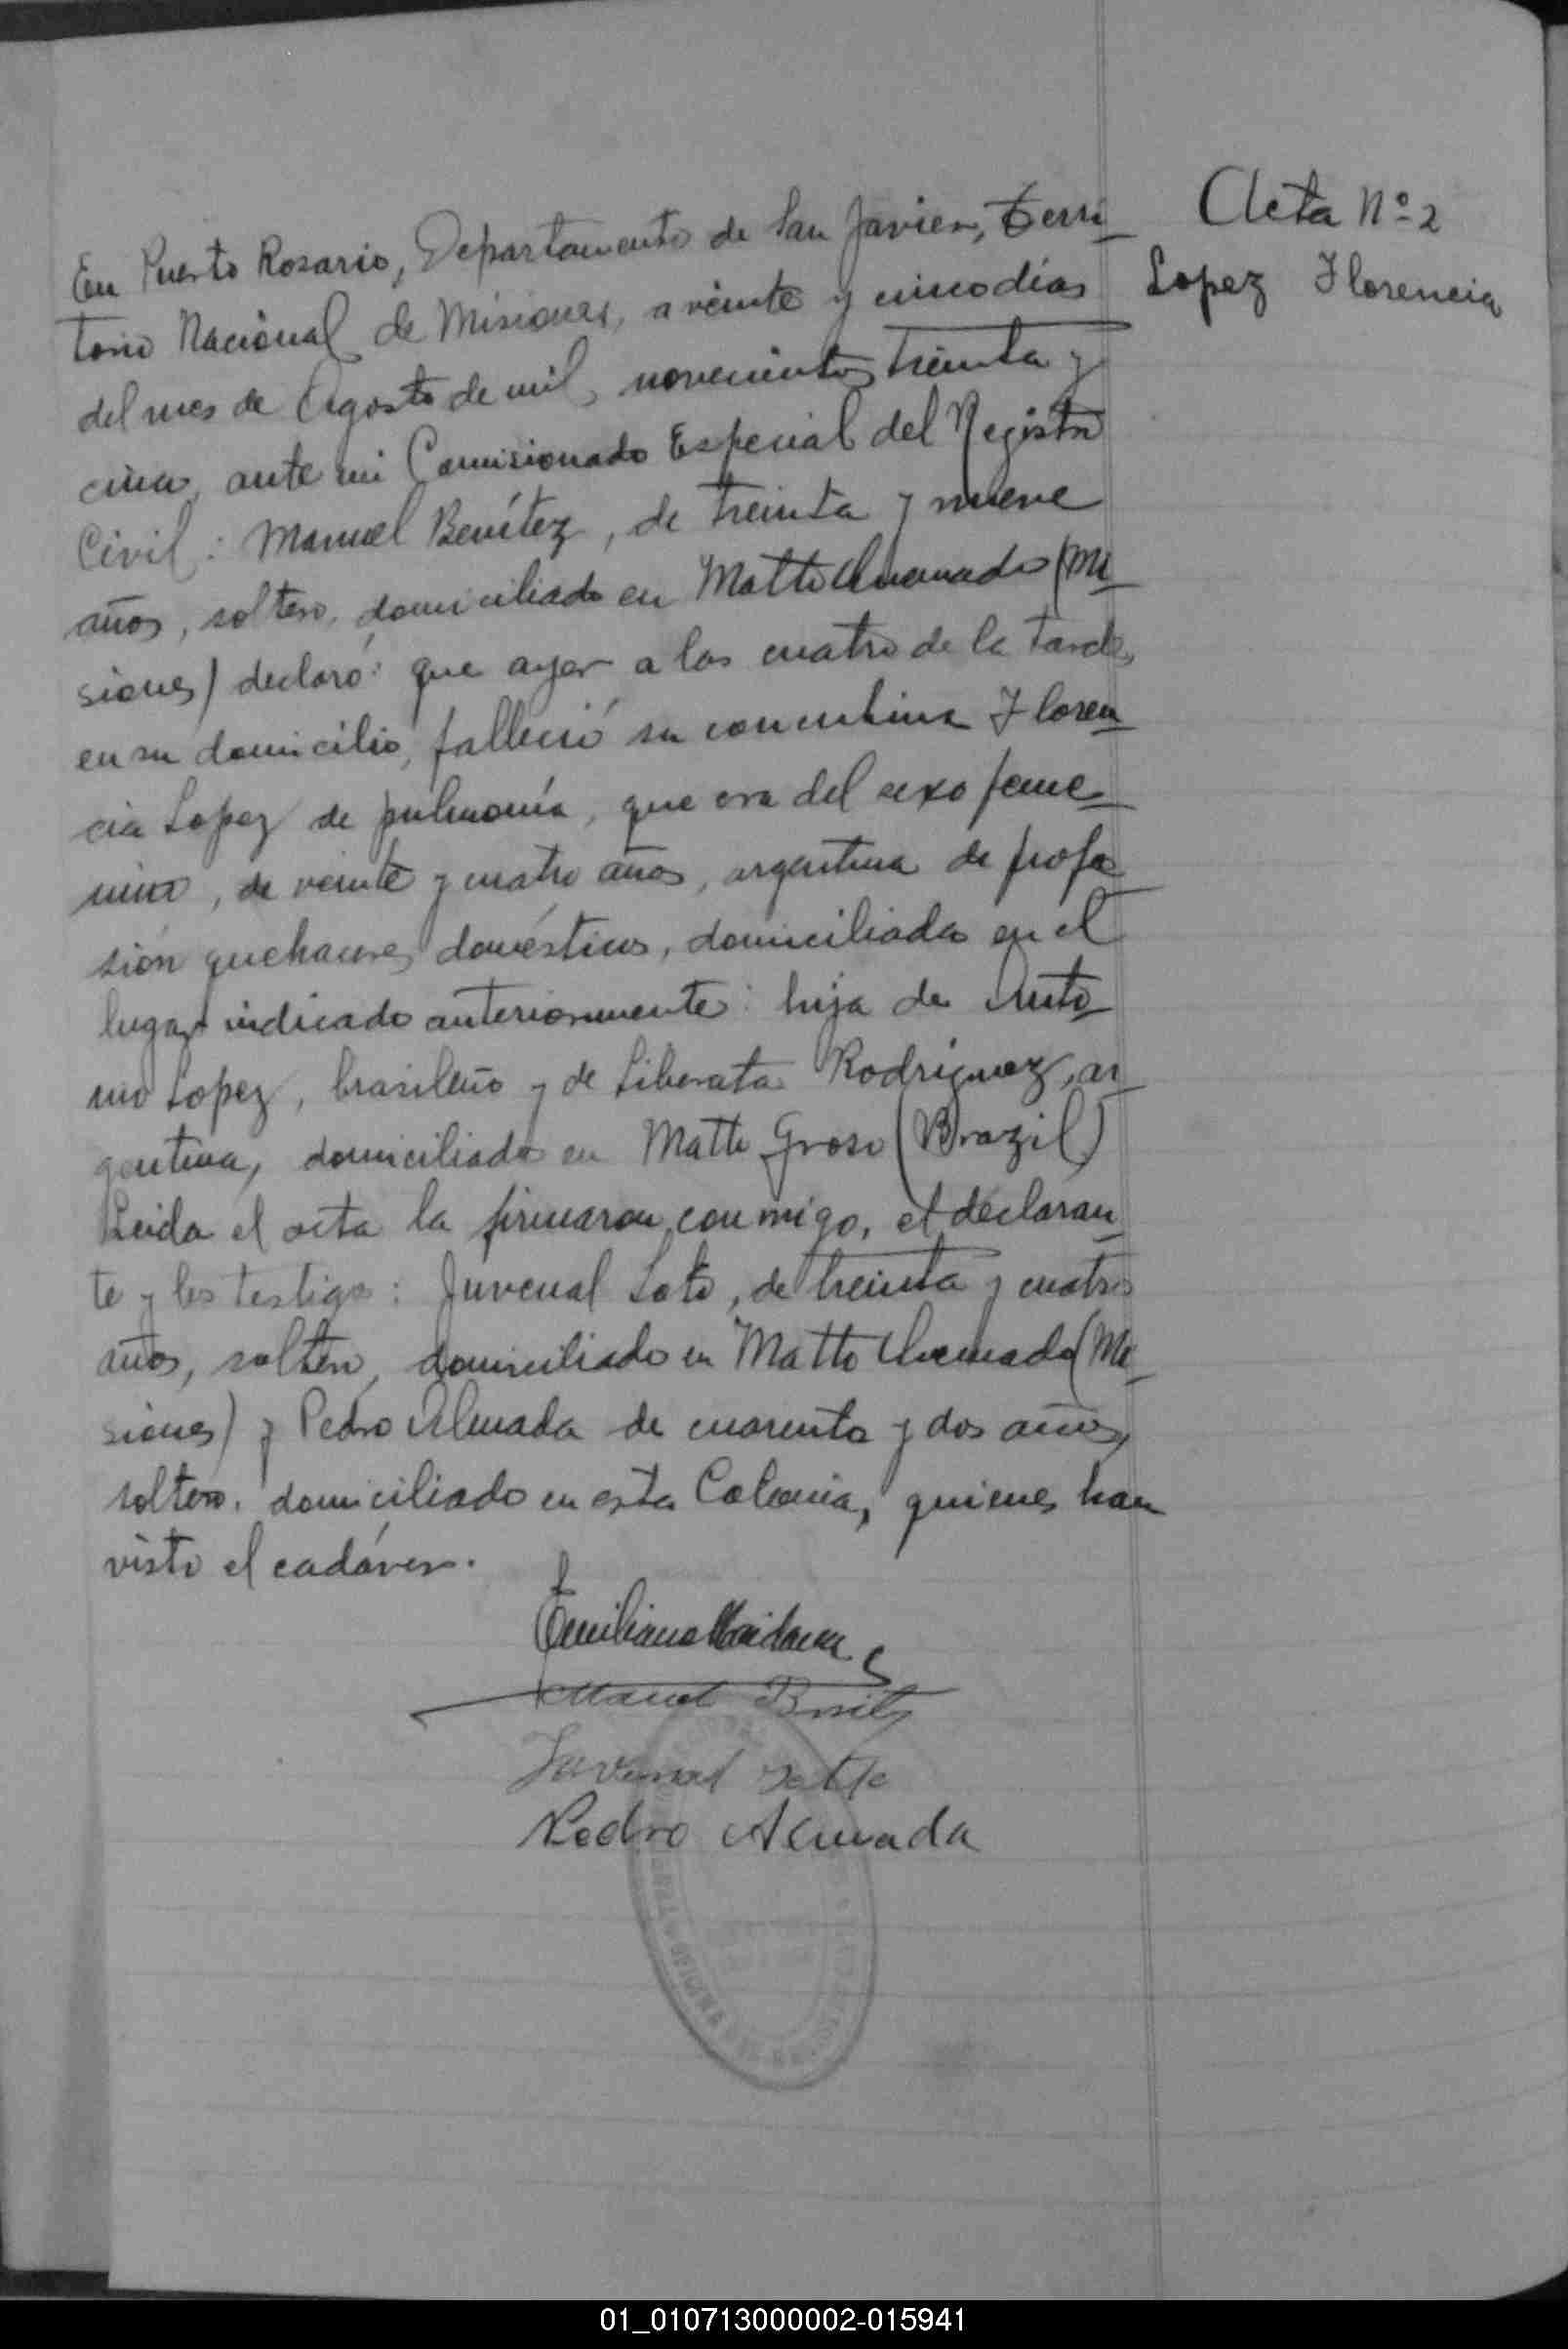 Acta Nº 2
Lopez Florencia
En Puerto Rosario, Departamento de San Javier, Terri-
torio Nacional de Misiones, a veinte y cinco dias
del mes de Agosto de mil, novecientos treinta y
cinco, ante mi Comisionado Especial del Registro
Civil: Manuel Benítez, de treinta y nueve
años, soltero, domiciliado en Matto Quemado (Mi-
siones) declaró: que ayer a las cuatro de la tarde,
en su domicilio, falleció su concubina Floren-
cia Lopez de pulmonía, que era del sexo feme-
nino, de veinte y cuatro años, argentina de profe-
sión quehaceres domésticos, domiciliada en el
lugar indicado anteriormente: hija de Anto-
nio Lopez, brasileño y de Liberata Rodriguez, ar-
gentina, domiciliados en Matto Groso (Brazil)
Leida el acta la firmaron conmigo, el declaran-
te y los testigos: Juvenal Soto, de treinta y cuatro
años, soltero, domiciliado en Matto Quemado (Mi-
siones) y Pedro Almada de cuarenta y dos años,
soltero, domiciliado en esta Colonia, quienes han
visto el cadáver.
Emiliano Maidana
Manuel Benitez
Juvenal
Pedro Almada
01_010713000002-015941